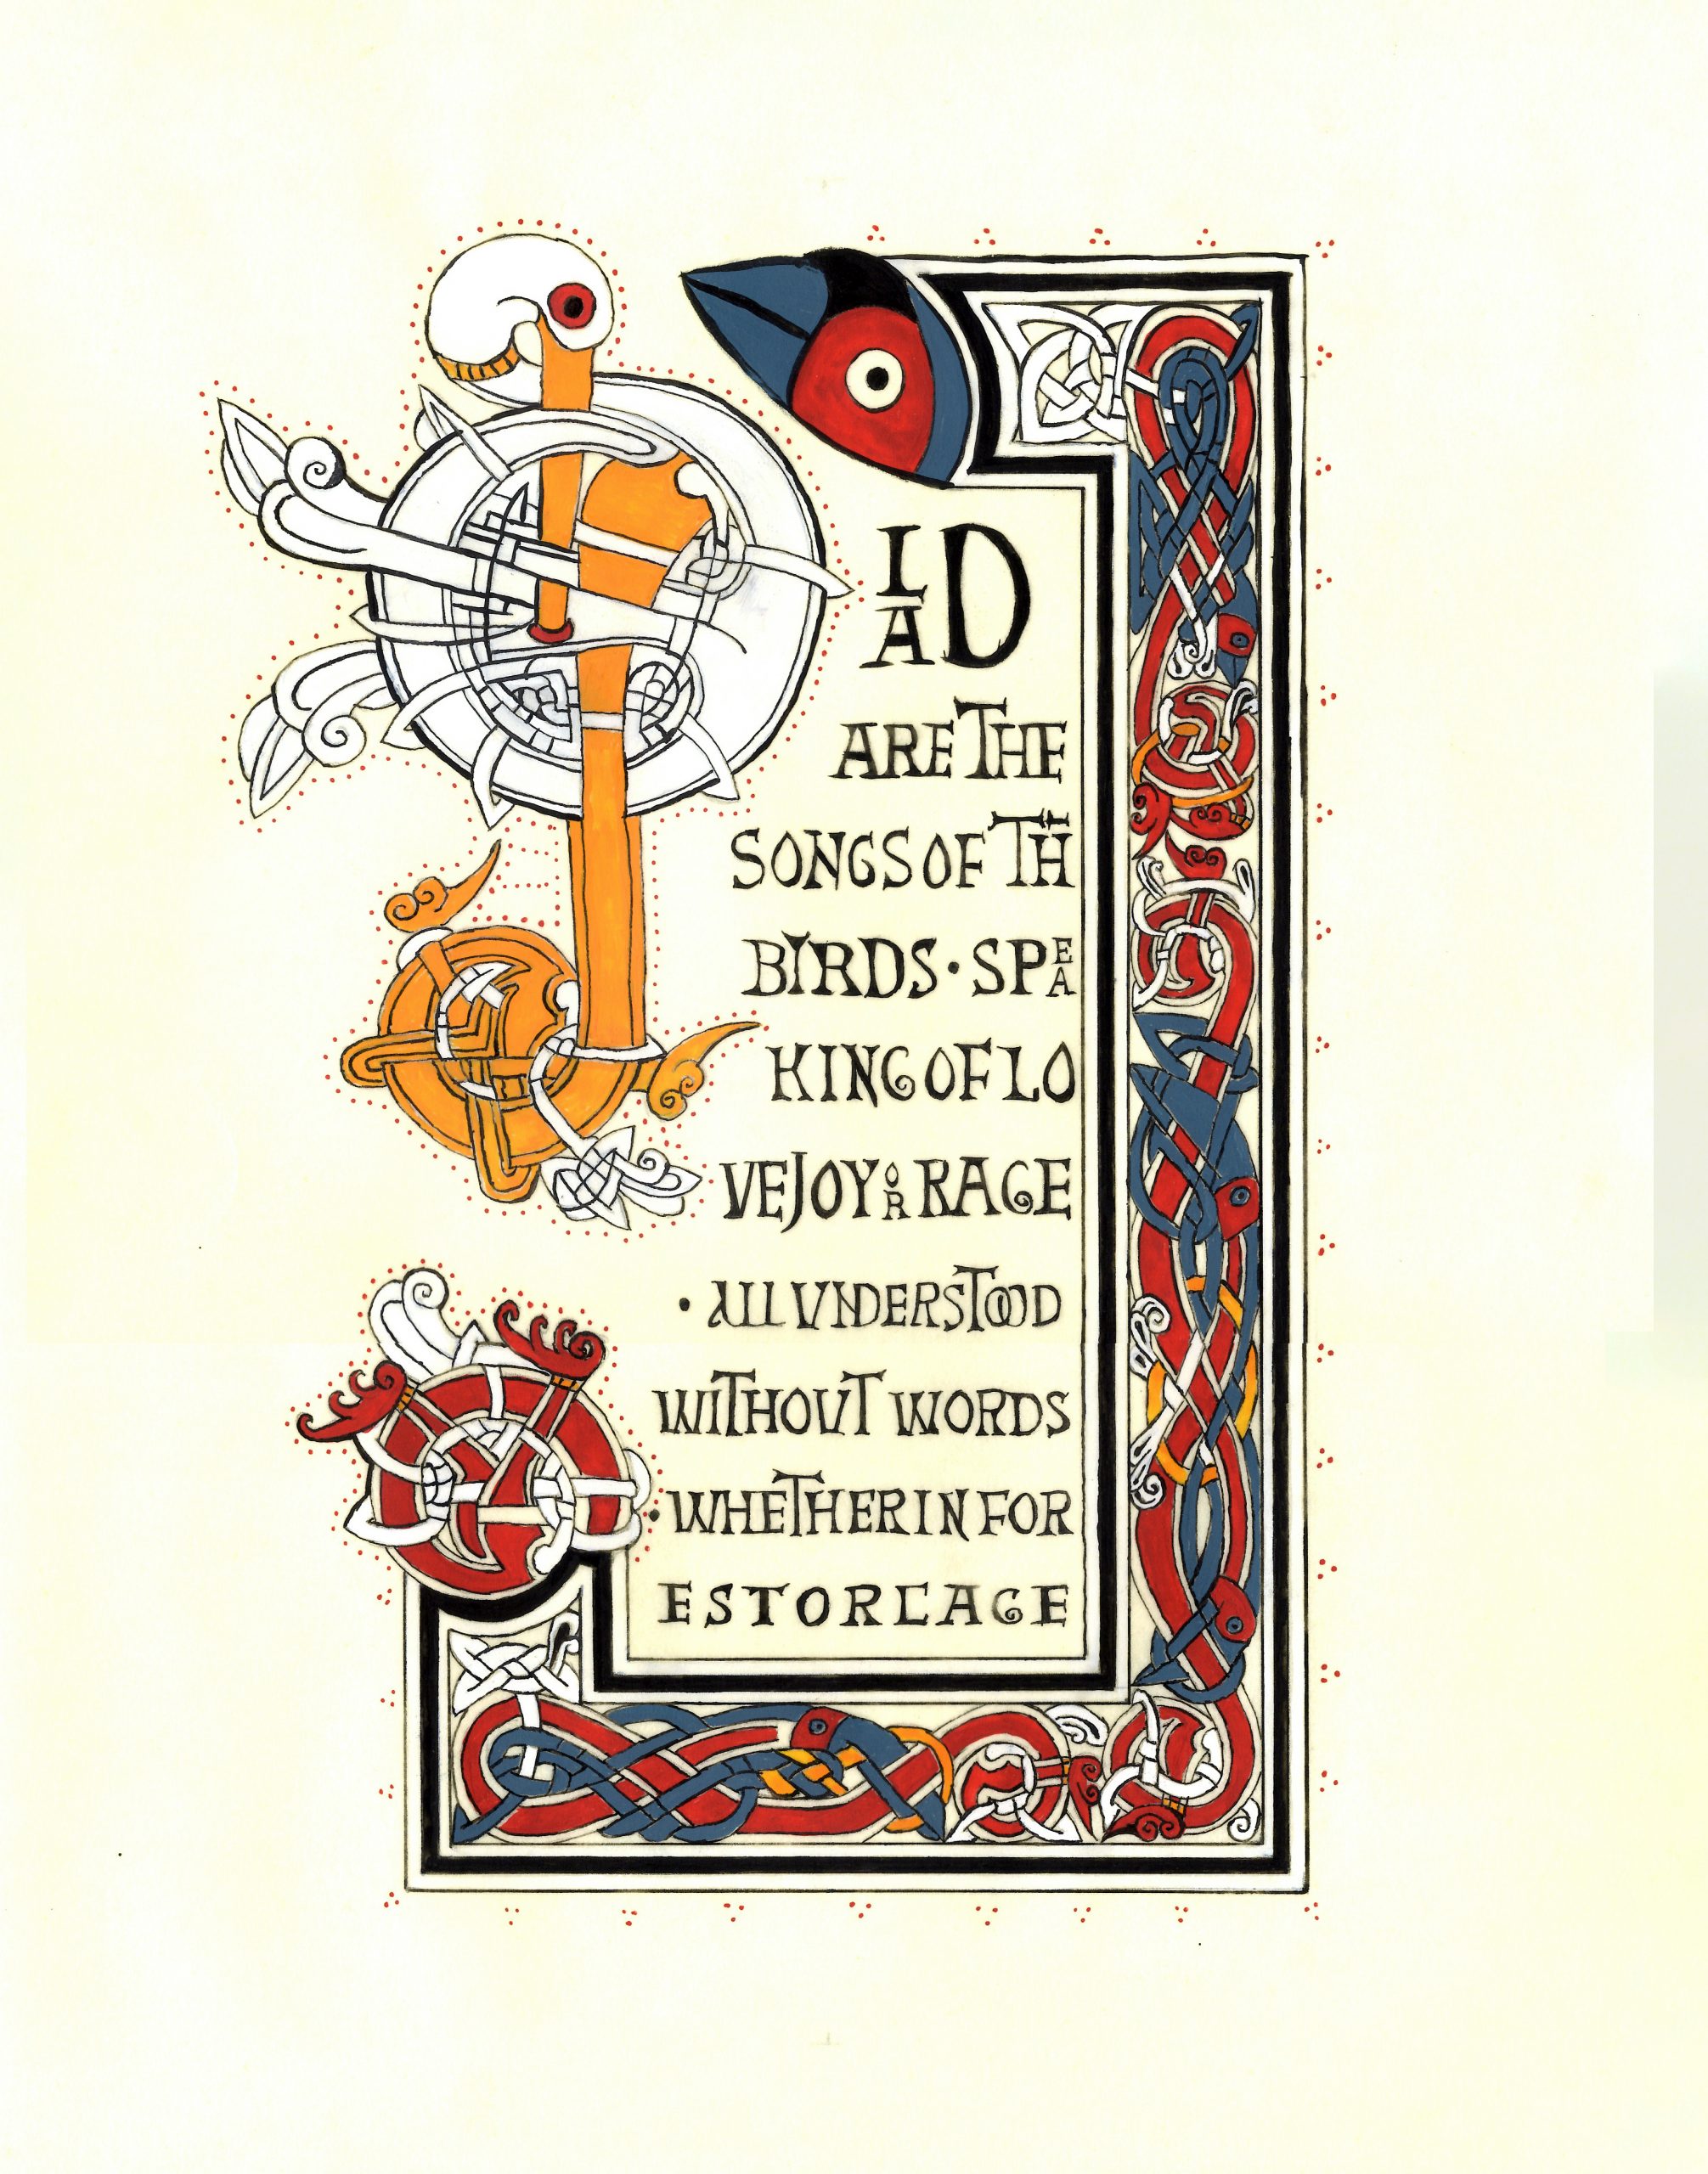 GLAD
ARE THE
SONGS OF THE
BIRDS · SPEA
KING OF LO
VE JOY OR RAGE
· ALL VNDERSTOOD
WITHOUT WORDS
· WHETHER IN FOR
EST OR CAGE